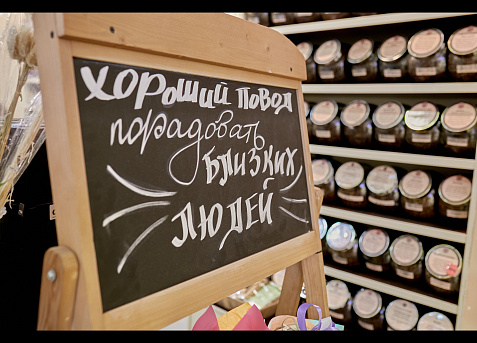 ХОРОШИЙ ПОВОД
порадовать
БЛИЗКИХ
ЛЮДЕЙ